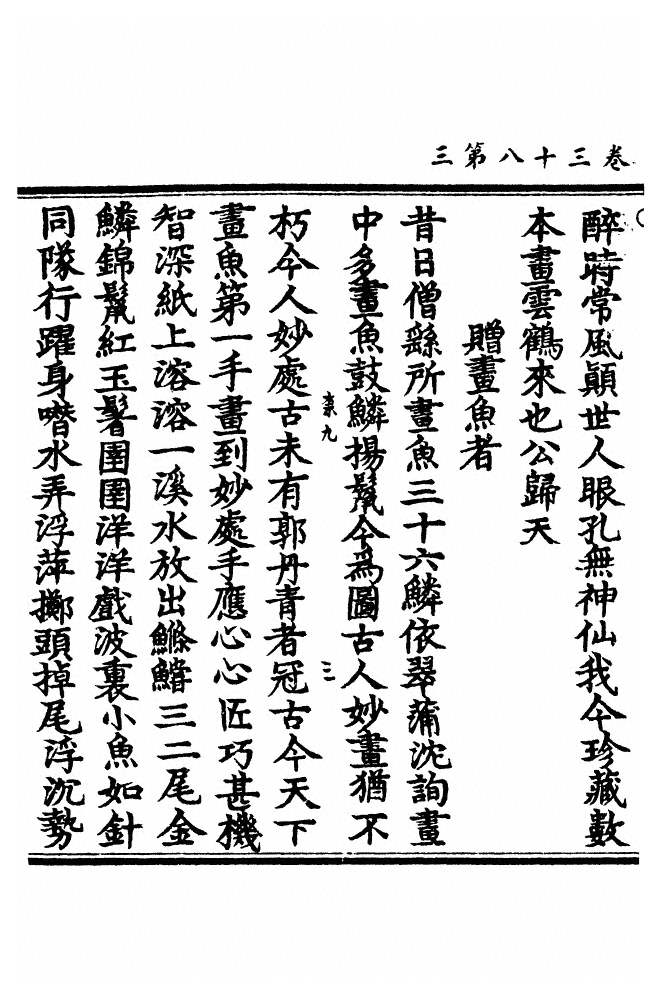 卷三十八第三
醉時常風顛世人眼孔無神仙我今珍藏數
本畫雲鶴來也公歸天
贈畫魚者
昔日僧繇所畫魚三十六鱗依翠蒲沈詢畫
中多畫魚鼓鱗揚鬣今爲圖古人妙畫猶不
九
三
朽今人妙處古未有郭丹青者冠古今天下
畫魚第一手畫到妙處手應心心匠巧甚機
智深紙上溶溶一溪水放出鰷鱨三二尾金
鱗錦鬣紅玉鬐圉圉洋洋戲波裏小魚如針
同隊行躍身噆水弄浮萍擲頭掉尾浮沉勢